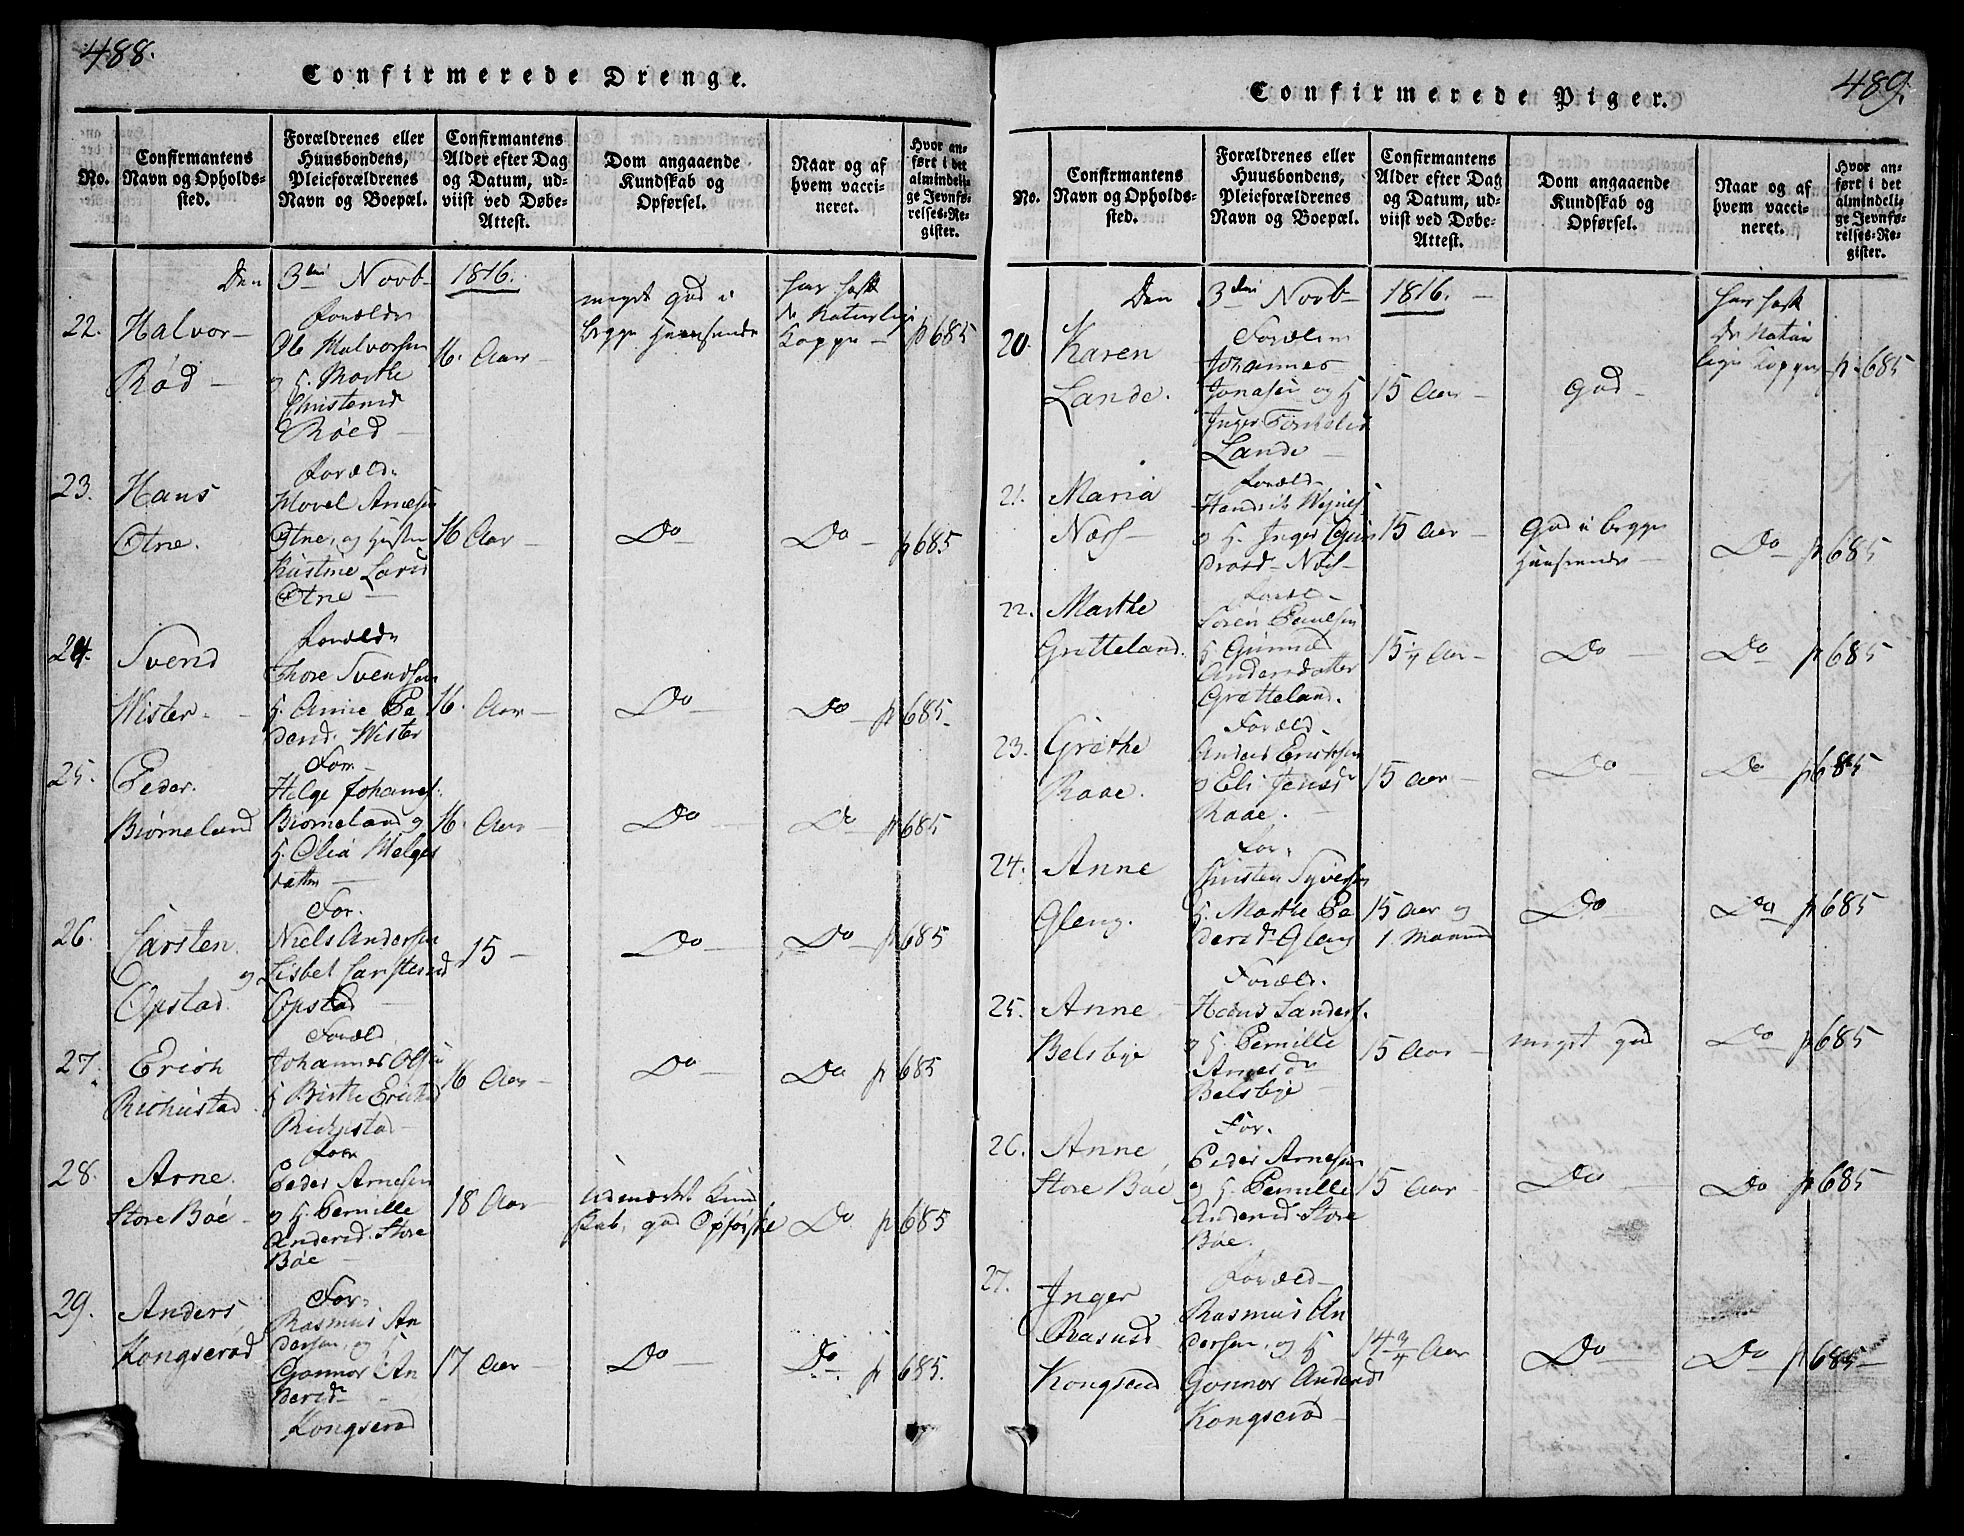 488.
Confirmerede Drenge.
No.
Confirmantens
Navn og Opholds-
sted.
Forældrenes eller
Huusbondens,
Pleieforældrenes
Navn og Boepæl.
Confirmantens
Alder efter Dag
og Datum, ud-
viist ved Døbe-
Attest.
Dom angaaende
Kundskab og
Opførsel.
Naar og af
hvem vacci-
neret.
Hvor an-
ført i det
almindeli-
ge Jevnfø-
relses-Re-
gister.
Den 3die Novb 1816.
22. Halvor
Rød
Foræld
Ole Halvorsen
og H. Marthe
Christensd
Røed
16. Aar
meget god i
begge Henseende
har haft
de Naturlige
Kopper
p 685
23. Hans
Otne.
Foræld.
Hovel Arnesen
Otne, og Hustru
Kirstine Larsd
Otne
16 Aar
Do
Do
p 685
24. Svend
Wister.
Foræld
Thore Svendsen
H. Anne Pe
dersd. Wister
16. Aar
Do
Do
p 685.
25. Peder.
Biørneland
For
Helge Johannes.
Biørneland og
H. Olea Helges
datter
16. Aar
Do
Do
p 685
26. Carsten
Opstad
For.
Niels Andersen
og Lisbet Carstensd
Opstad
15
Do
Do
p 685
27. Erich
Richustad
Foræld
Johannes Olsen
H Birthe Ericksd
Richustad
16 Aar
Do
Do
p 685
28. Arne.
Store Bøe
For
Peder Arnesen
og H. Pernille
Andersd. Store
Bøe
18 Aar
Udmærket Kund
skab, god Opførsel
Do
p 685
29. Anders
Kongserød
For.
Rasmus An
dersen, og H
Gonnor An
dersd
Kongserød
17 Aar
Do
Do
p 685.
489.
Confirmerede Piger.
No.
Confirmantens
Navn og Opholds-
sted.
Forældrenes eller
Huusbondens,
Pleieforældrenes
Navn og Boepæl.
Confirmantens
Alder efter Dag
og Datum, ud-
viist ved Døbe-
Attest.
Dom angaaende
Kundskab og
Opførsel.
Naar og af
hvem vacci-
neret.
Hvor an-
ført i det
almindeli-
ge Jevnfø-
relses-Re-
gister.
Den 3die Novb 1816.
20. Karen
Lande.
Foræld
Johannes
Jonasen og H
Inger Torkelsd
Lande
15 Aar
God
har haft
de Natur
lige Kopper
p. 685
21. Maria
Næss
Foræld
Hendrik
og H. Inger
Næs
15 Aar
God i begge
Henseende
Do
p 685
22. Marthe
Grætteland.
Foræld
Søren Paulsen
H. Gunnild
Andersdatter
Grætteland.
15 1/4 Aar
Do
Do
p 685
23. Grethe
Raae.
Foræld
Anders Ericksen
og Eli Jensd
Raae.
15 Aar
Do
Do
p 685
24. Anne
Gleng.
For.
Christen Syversen
H. Marthe Pe
dersd Gleng
15 Aar og
1. Maaned
Do
Do
p 685
25. Anne
Belsbye
Foræld.
Hans Landers.
og H. Pernille
Arnesd
Belsbye
15 Aar
meget god
Do
p 685
26. Anne
Store Bøe
For.
Peder Arnesen
og H. Pernille
Andersd. Store
Bøe.
15 Aar
Do
Do
p 685
27. Inger
Rasmusd
Kongserød
Foræld
Rasmus An
dersen, og H
Gonnor Andersd
Kongserød
14 3/4 Aar
Do
Do
p 685